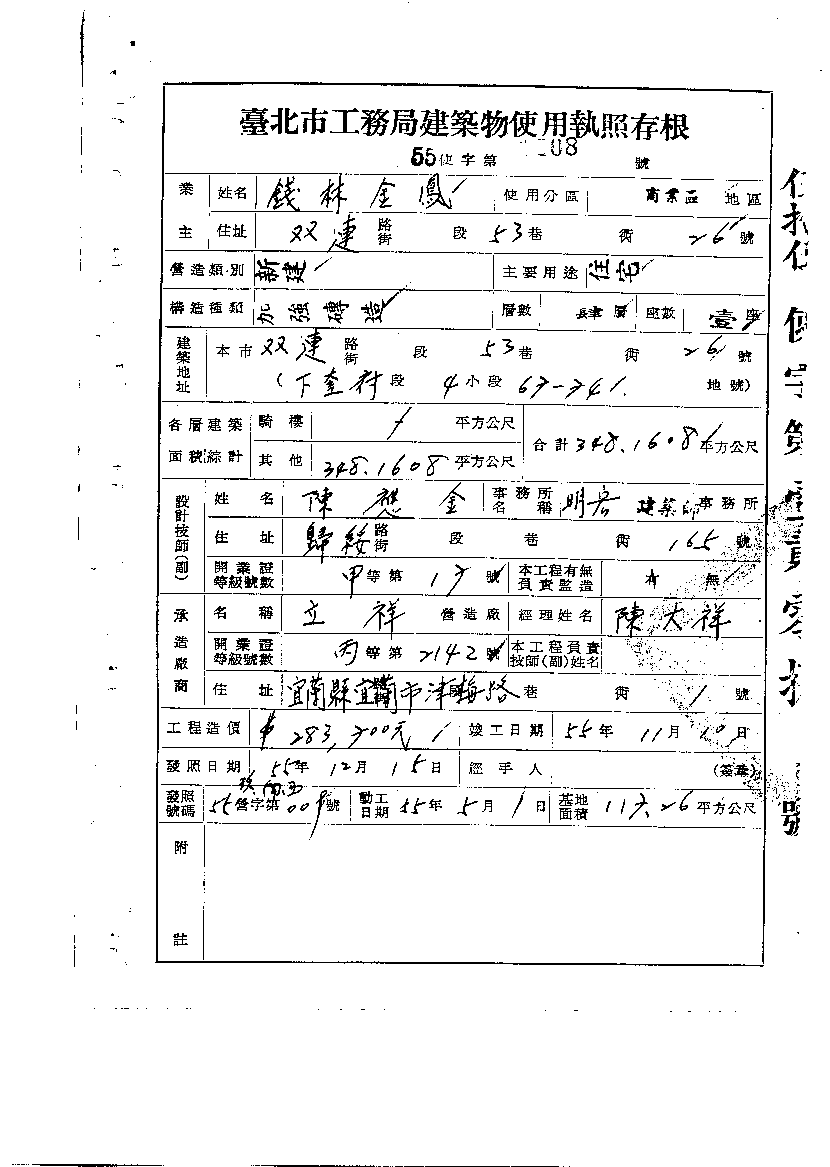 臺北市工務局建築物使用執照存根
55使字第 08 號
業主 姓名 錢林金鳳 使用分區 商業區 地區
住址 双連 路街 段 53巷 衖 26號
營造類別 新建 主要用途 住宅
構造種類 加強磚造 層數 層 座數 壹座
建築地址 本市双連 路街 段 53巷 衖 26號
(下奎府段 4小段 67-241. 地號)
各層建築面積綜計 騎樓 平方公尺 合計348.1608平方公尺
其他 348.1608平方公尺
設計技師(副) 姓名 陳應金 事務所名稱 明岩 建築師事務所
住址 歸綏 路街 段 巷 衖 165號
開業證等級號數 甲等第 17號 本工程有無負責監造 有 無
承造廠商 名稱 立祥 營造廠 經理姓名 陳大祥
開業證等級號數 丙等第2142號 本工程負責技師(副)姓名
住址 宜蘭縣宜蘭市津梅路 巷 衖 1號
工程造價 283,700元 竣工日期 55年11月10日
發照日期 55年12月15日 經手人 (簽章)
發照號碼 55營字第 號 動工日期 55年5月1日 基地面積 117.26平方公尺
附註